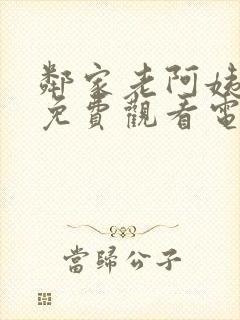 鄰家老阿姨
免費觀看電
當歸公子